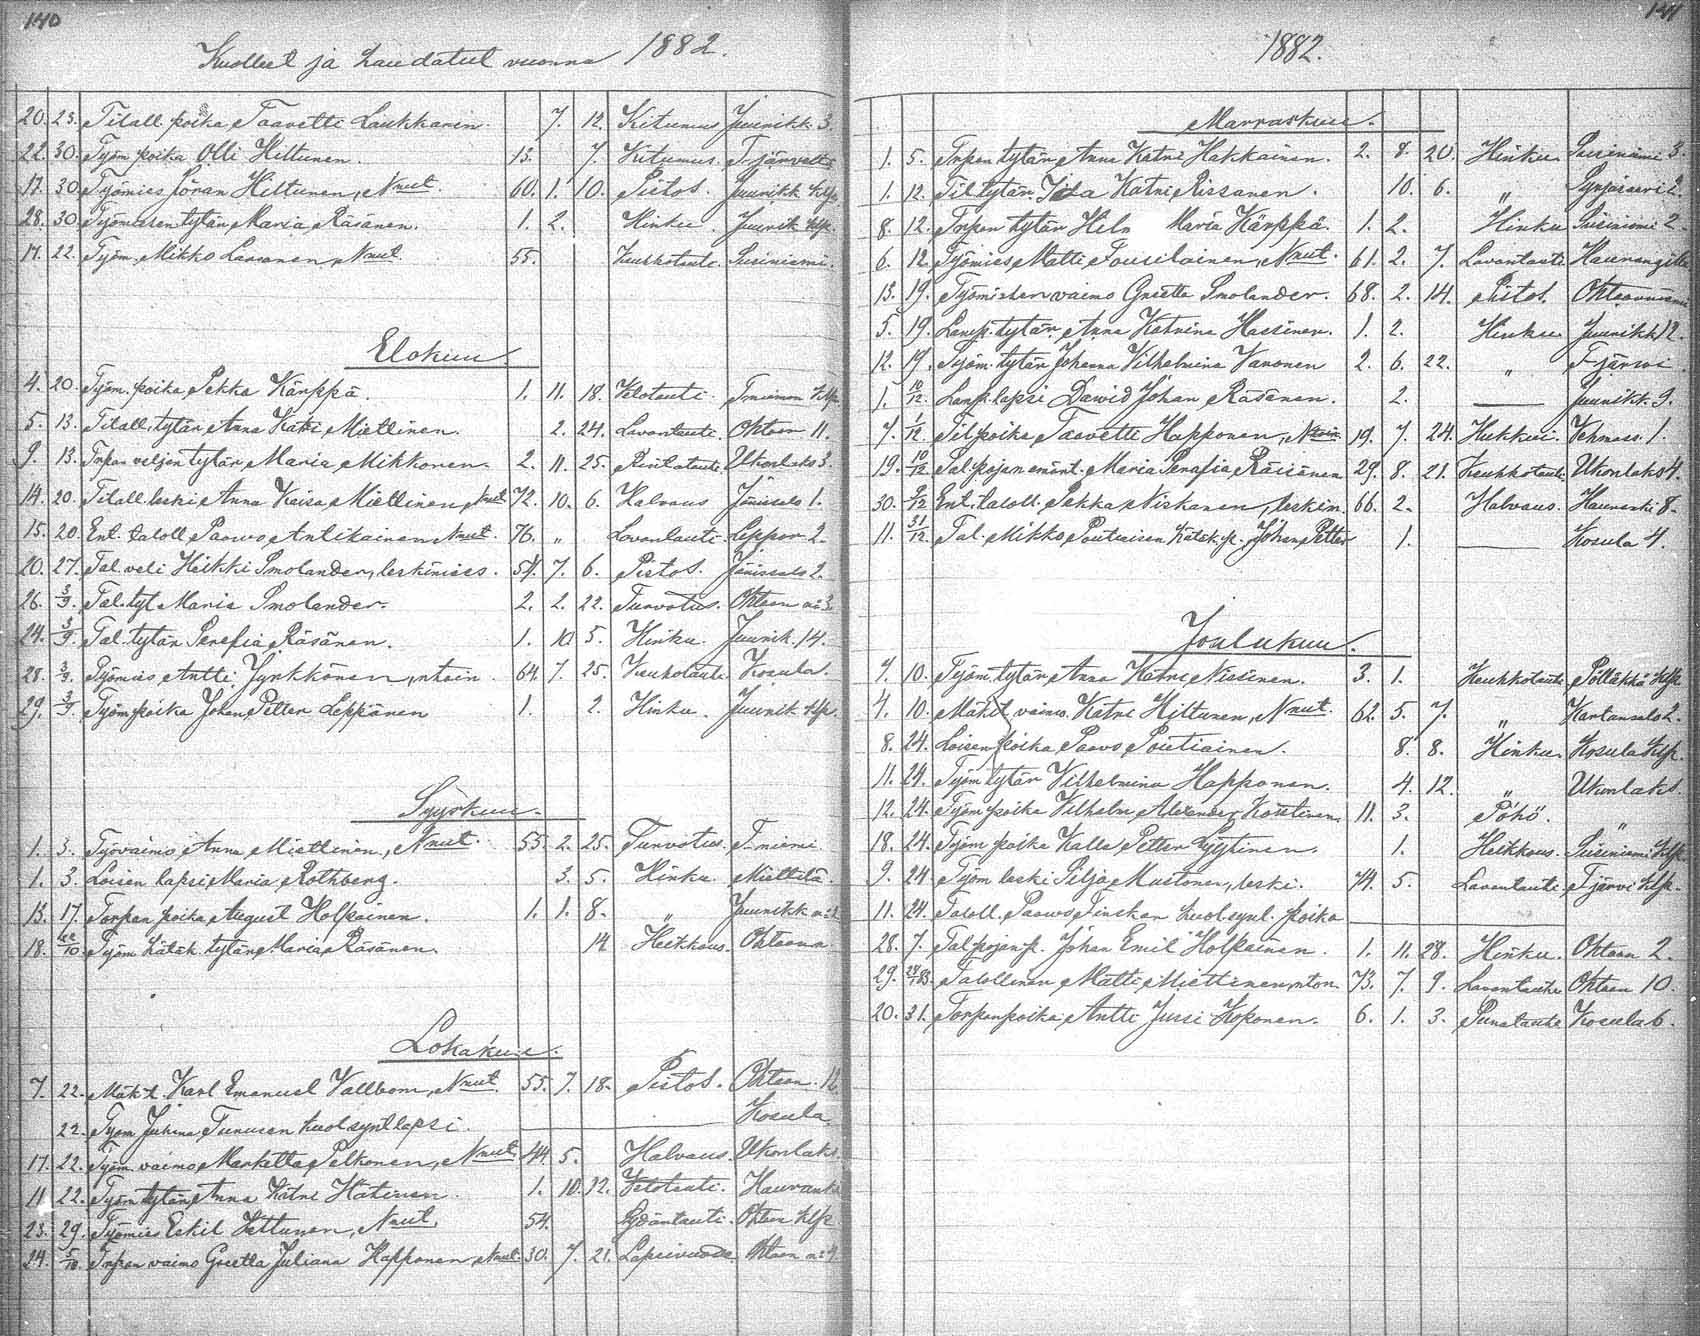 140
Kuolleet ja haudatut vuonna 1882.
20. 23. Titall. poika Taavetti Laukkanen. 7. 12. Kitumus Juurikk. 3.
22. 30. Työm. poika Olli Hiltunen. 13. 7. Kitumus. T-järveltä
17. 30. Työmies Göran Hiltunen, Nnut. 60. 1. 10. Pistos. Juurikk klp.
28. 30 Työmiesen tytär Maria Räsänen. 1. 2. Hinku. Juurik klp.
17. 22. Työm. Mikko Nnut 55. Keuhkotauti. Susiniemi.
Elokuu.
4. 20. Työm. poika Pekka Kärppä. 1. 11. 18. Velotauti. klp
5. 13. Titall. tytär Anna Katri Miettinen. 2. 24. Lavantauti. Ohtaan 11.
9. 13. Trpan veljen tytär Maria Mikkonen. 2. 11. 25. Ukonlaks 3.
14. 20. Titall. leski Anna Kaisa Miettinen, Nnut 72. 10. 6. Halvaus Jänissalo 1.
15. 20. Ent. taloll. Paavo Antikainen Nnut. 76. „ Lavantauti. Leppär 2.
20. 27. Tal. veli Heikki Smolander, leskimies. 54. 7. 6. Pistos. Jänissalo 2.
26. 3/9. Tal. tyt. Maria Smolander. 2. 2. 22. Turvotus. Ohtaan n:3.
24. 3/9. Tal. tytär Serafia Räsänen. 1. 10 5. Hinku. Juurik. 14.
28. 3/9. Työmies Antti Jyrkkönen, ntoin. 64. 7. 25. Keuhotauti Kosula.
29. 3/9. Työm poika Johan Petter Leppänen 1. 2. Hinku. Juurik klp.
Syyskuu.
1. 3. Työvaimo Anna Miettinen, Nnut. 55. 2. 25. Turvotus. T-niemi
1. 3. Loisen lapsi Maria Rothberg. 3. 5. Hinku. Miettilä.
13. 17. Torpan poika August Holpainen. 1. 1. 8. „ Juurikk
18. 22/10 Työm. kätäk. tytär Maria Räsänen. 14 Heikkous. Ohtaan
Lokakuu.
7. 22. Mäkit. Karl Emanuel Vallbom, Nnut. 55. 7. 18. Pistos. Ohtaan. 12
22. Työm Juhana Turusen kuol synt lapsi. Kosula
17. 22. Työm. vaimo Marketta Pelkonen, Nnut 44. 5. Halvaus. Ukonlaks.
11 22. Työm tytär Anna Katri 1. 10. 12. Velotauti. Hauranki
23. 29. Työmies Eskil Nnut. 54. Sydäntauti. Ohtaan klp
24. 5/10. Trpan vaimo Greetta Juliana Happonen, Nnut. 30. 7. 21. Lapsivuode. Ohtaan n:4
141
1882.
Marraskuu.
1. 5. Trpan tytär Anna Katri Hakkainen. 2. 8. 20. Hinku Susiniemi 3.
1. 12. Til. tytär Ida Katri Rissanen. 10. 6. „ Syvjäsarvi 2.
8. 12. Trpan tytär Hel Maria Kärppä. 1. 2. Hinku Susiniemi 2.
6. 12. Työmies Matti Tousilainen, Nnut. 61. 2. 7. Lavantauti
13. 19. Työmiehen vaimo Greetta Smolander. 68. 2. 14. Pistos. Ohtaanniemi
5. 19. Lamp. tytär Anna Katrina Hassinen. 1. 2. Hinku. Juurikk 12.
12. 19. Työm. tytär Johanna Vilhelmina Varonen 2. 6. 22. „ T-järvi.
1. 10/12. Lamp. lapsi Dawid Johan Räsänen. 2. Juurikk. 9.
7. 1/12. Til poika Taavetti Happonen, Ntoin. 19. 7. 24. Hukkui. Vehmass. 1.
19. 10/12 Tal. pojan emänt. Maria Serafia Räisänen 29. 8. 21. Keuhkotauti. Ukonlaks 4.
30. 9/12 Ent. taloll. Pekka Niskanen, leskim. 66. 2. Halvaus. Hauranki 8.
11. 31/12. Tal. Mikko Poutiaisen kätäk. p. Johan Petter 1. Kosula 4.
Joulukuu.
4. 10. Työm. tytär Anna Katri Nissinen. 3. 1. Keuhkotauti Pölläkkä klp.
4. 10. Mäkit. vaimo Katri Hiltunen, Nnut. 62. 5. 7. „ Kartansalo 2.
8. 24. Loisen poika Paavo Poutiainen. 8. 8. Hinku. Kosula klp.
11. 24. Työm tytär Vilhelmina Happonen. 4. 12. „ Ukonlaks.
12. 24. Työm poika Vilhelm Alexander Kostinen 11. 3. Pöhö. „
18. 24. Työm poika Kalle Petter Pyytinen. 1. Heikkous. Susiniemi klp
9. 24 Työm leski Silja Mustonen, leski. 74. 5. Lavantauti T-järvi klp.
11. 24. Taloll. Paavo kuol. synt. poika
28. 7. Tal. pojan p. Johan Emil Holpainen. 1. 11. 28. Hinku. Ohtaan 2.
29. Talollinen Matti Miettinen, nton. 73. 7. 9. Lavantauti Ohtaan 10.
20. 31. Torpan poika Antti Jussi Koponen. 6. 1. 3. Punatauti Kosula 6.